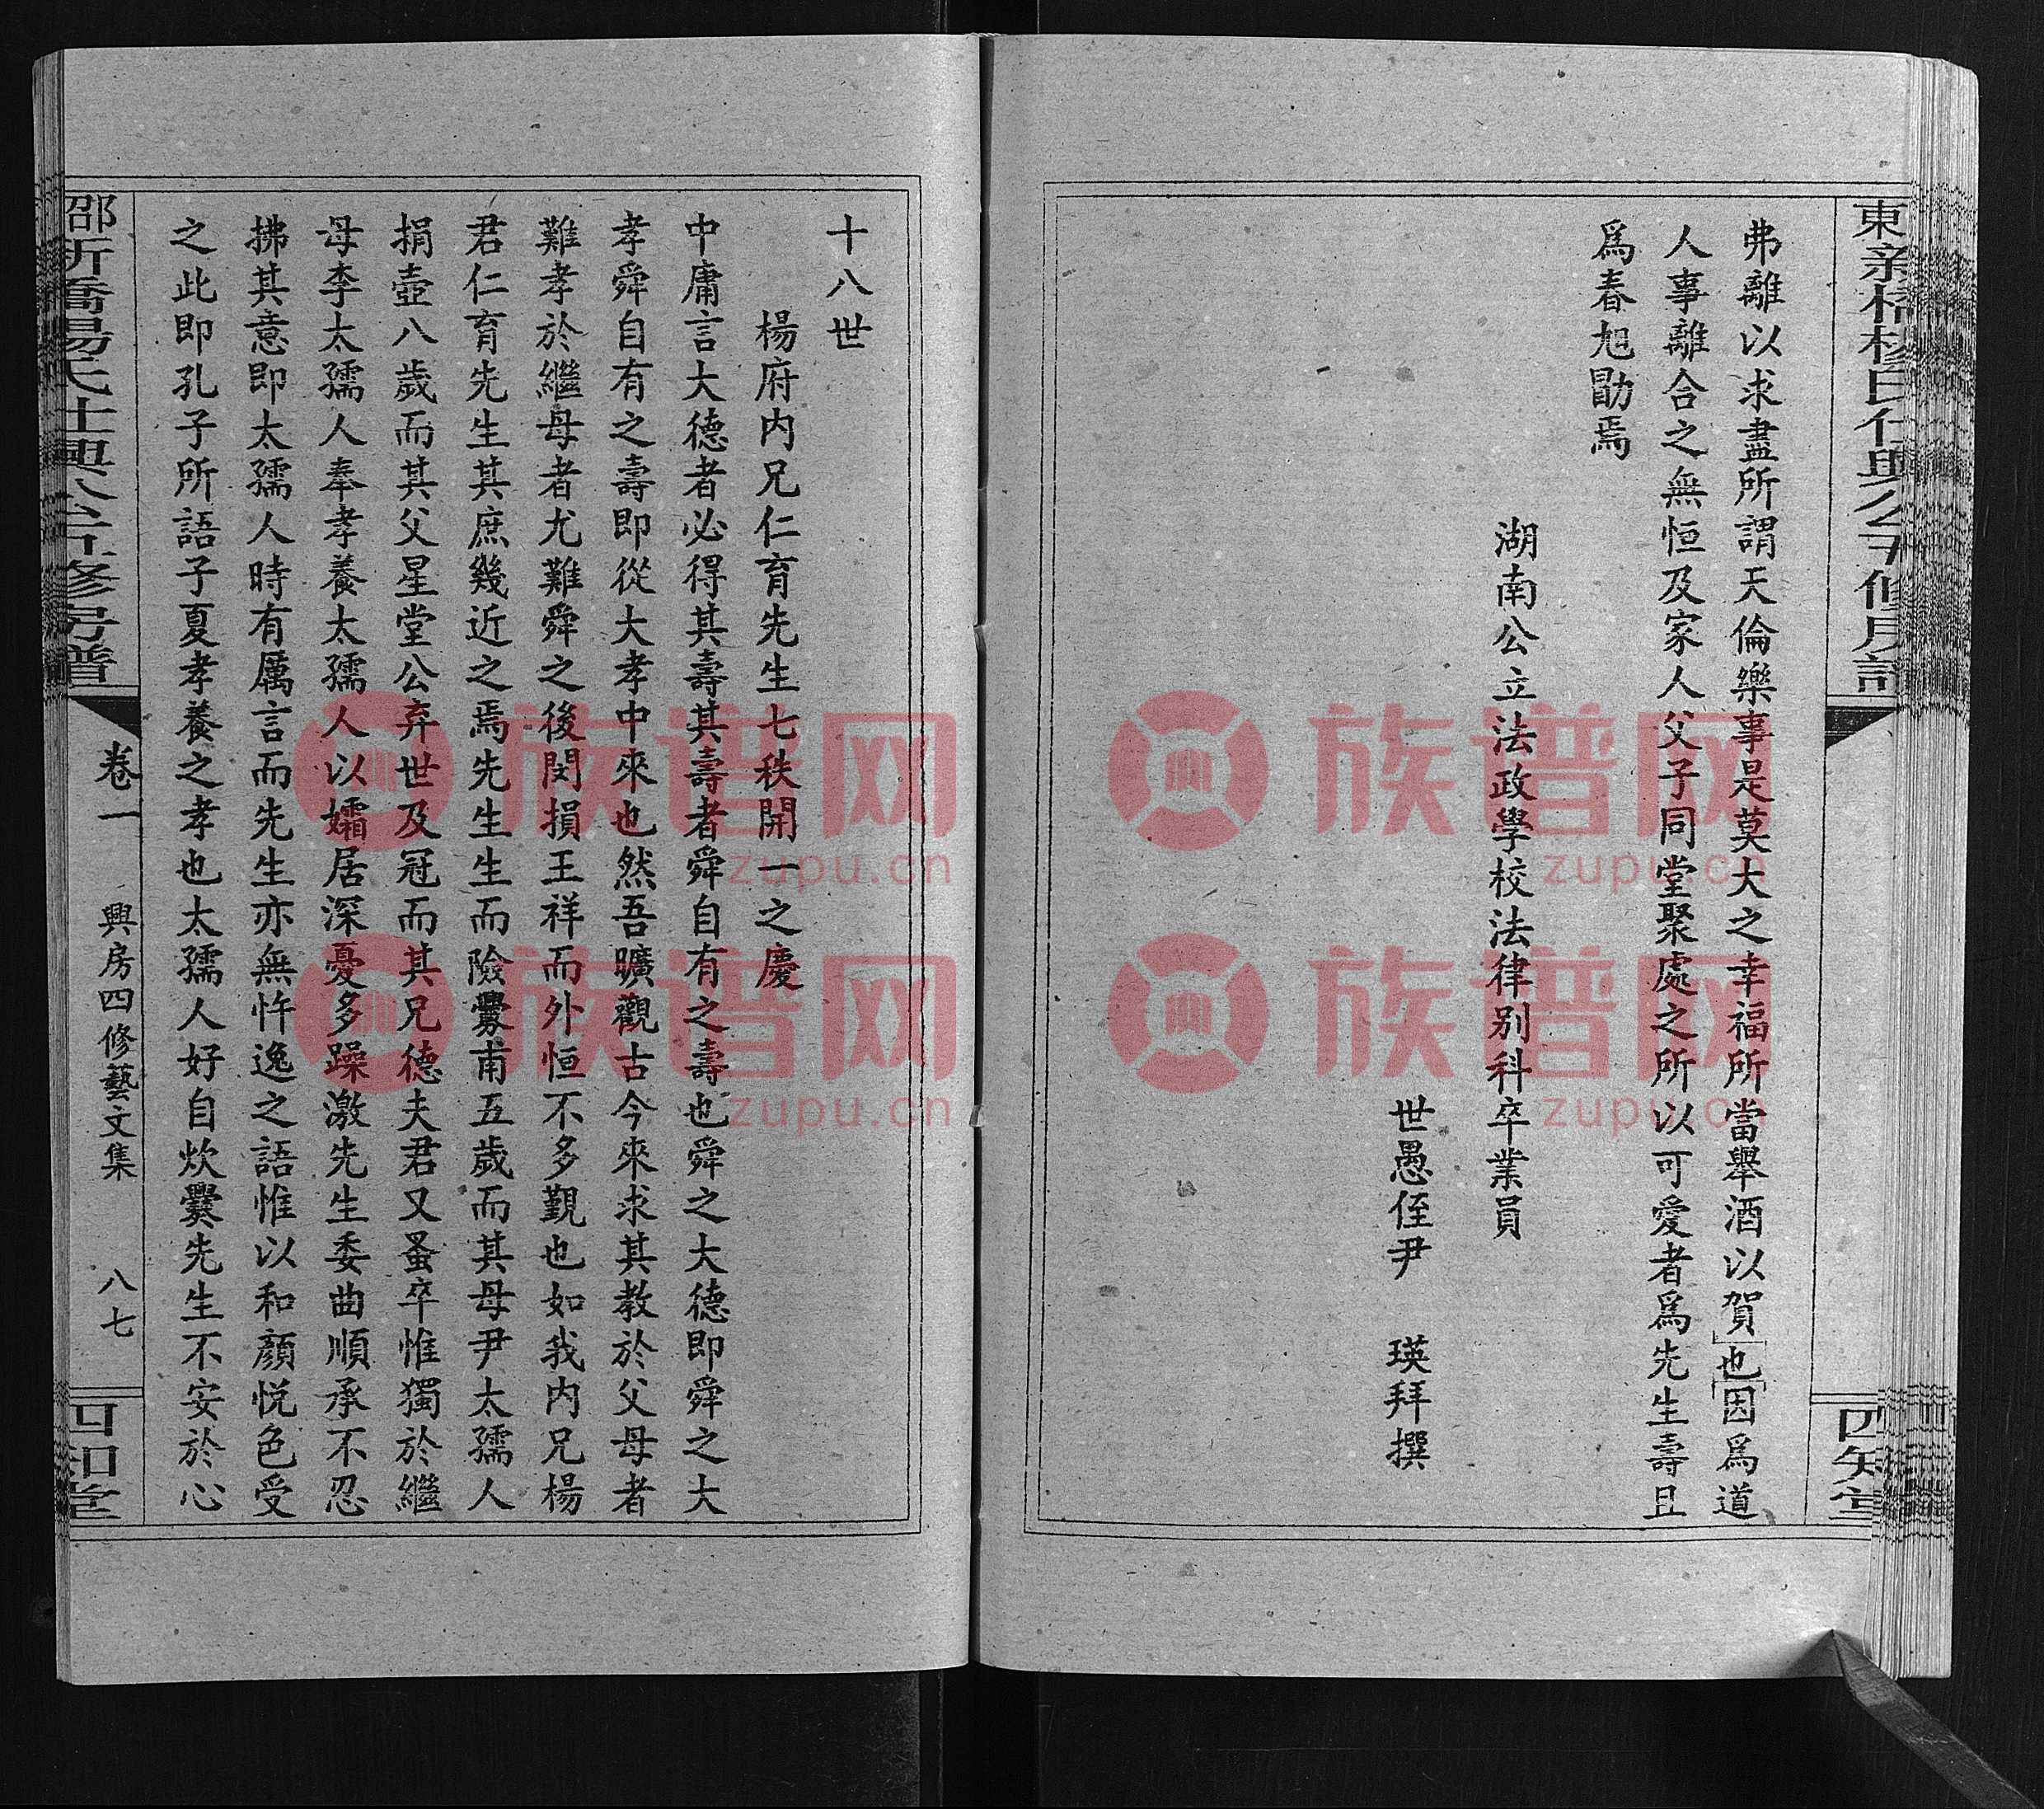 東新橋楊氏仕興公五修房譜
四知堂
弗離以求盡所謂天倫樂事是莫大之幸福所當舉酒以賀也因爲道
人事離合之無恒及家人父子同堂聚處之所以可愛者爲先生壽且
爲春旭勖焉
湖南公立法政學校法律別科卒業員
世愚侄尹　瑛拜撰
十八世
楊府内兄仁育先生七秩開一之慶
中庸言大德者必得其壽其壽者舜自有之壽也舜之大德即舜之大
孝舜自有之壽即從大孝中來也然吾曠觀古今來求其教於父母者
難孝於繼母者尤難舜之後閔損王祥而外恒不多觀也如我内兄楊
君仁育先生其庶幾近之焉先生生而險釁甫五歲而其母尹太孺人
捐壺八歲而其父星堂公弃世及冠而其兄德夫君又蚤卒惟獨於繼
母李太孺人奉孝養太孺人以孀居深憂多躁激先生委曲順承不忍
拂其意即太孺人時有厲言而先生亦無忤逸之語惟以和顔悦色受
之此即孔子所語子夏孝養之孝也太孺人好自炊爨先生不安於心
邵新橋楊氏仕興公五修房譜
卷一　興房四修藝文集　八七
四知堂
族谱网
zupu.cn
族谱网
zupu.cn
族谱网
zupu.cn
族谱网
zupu.cn